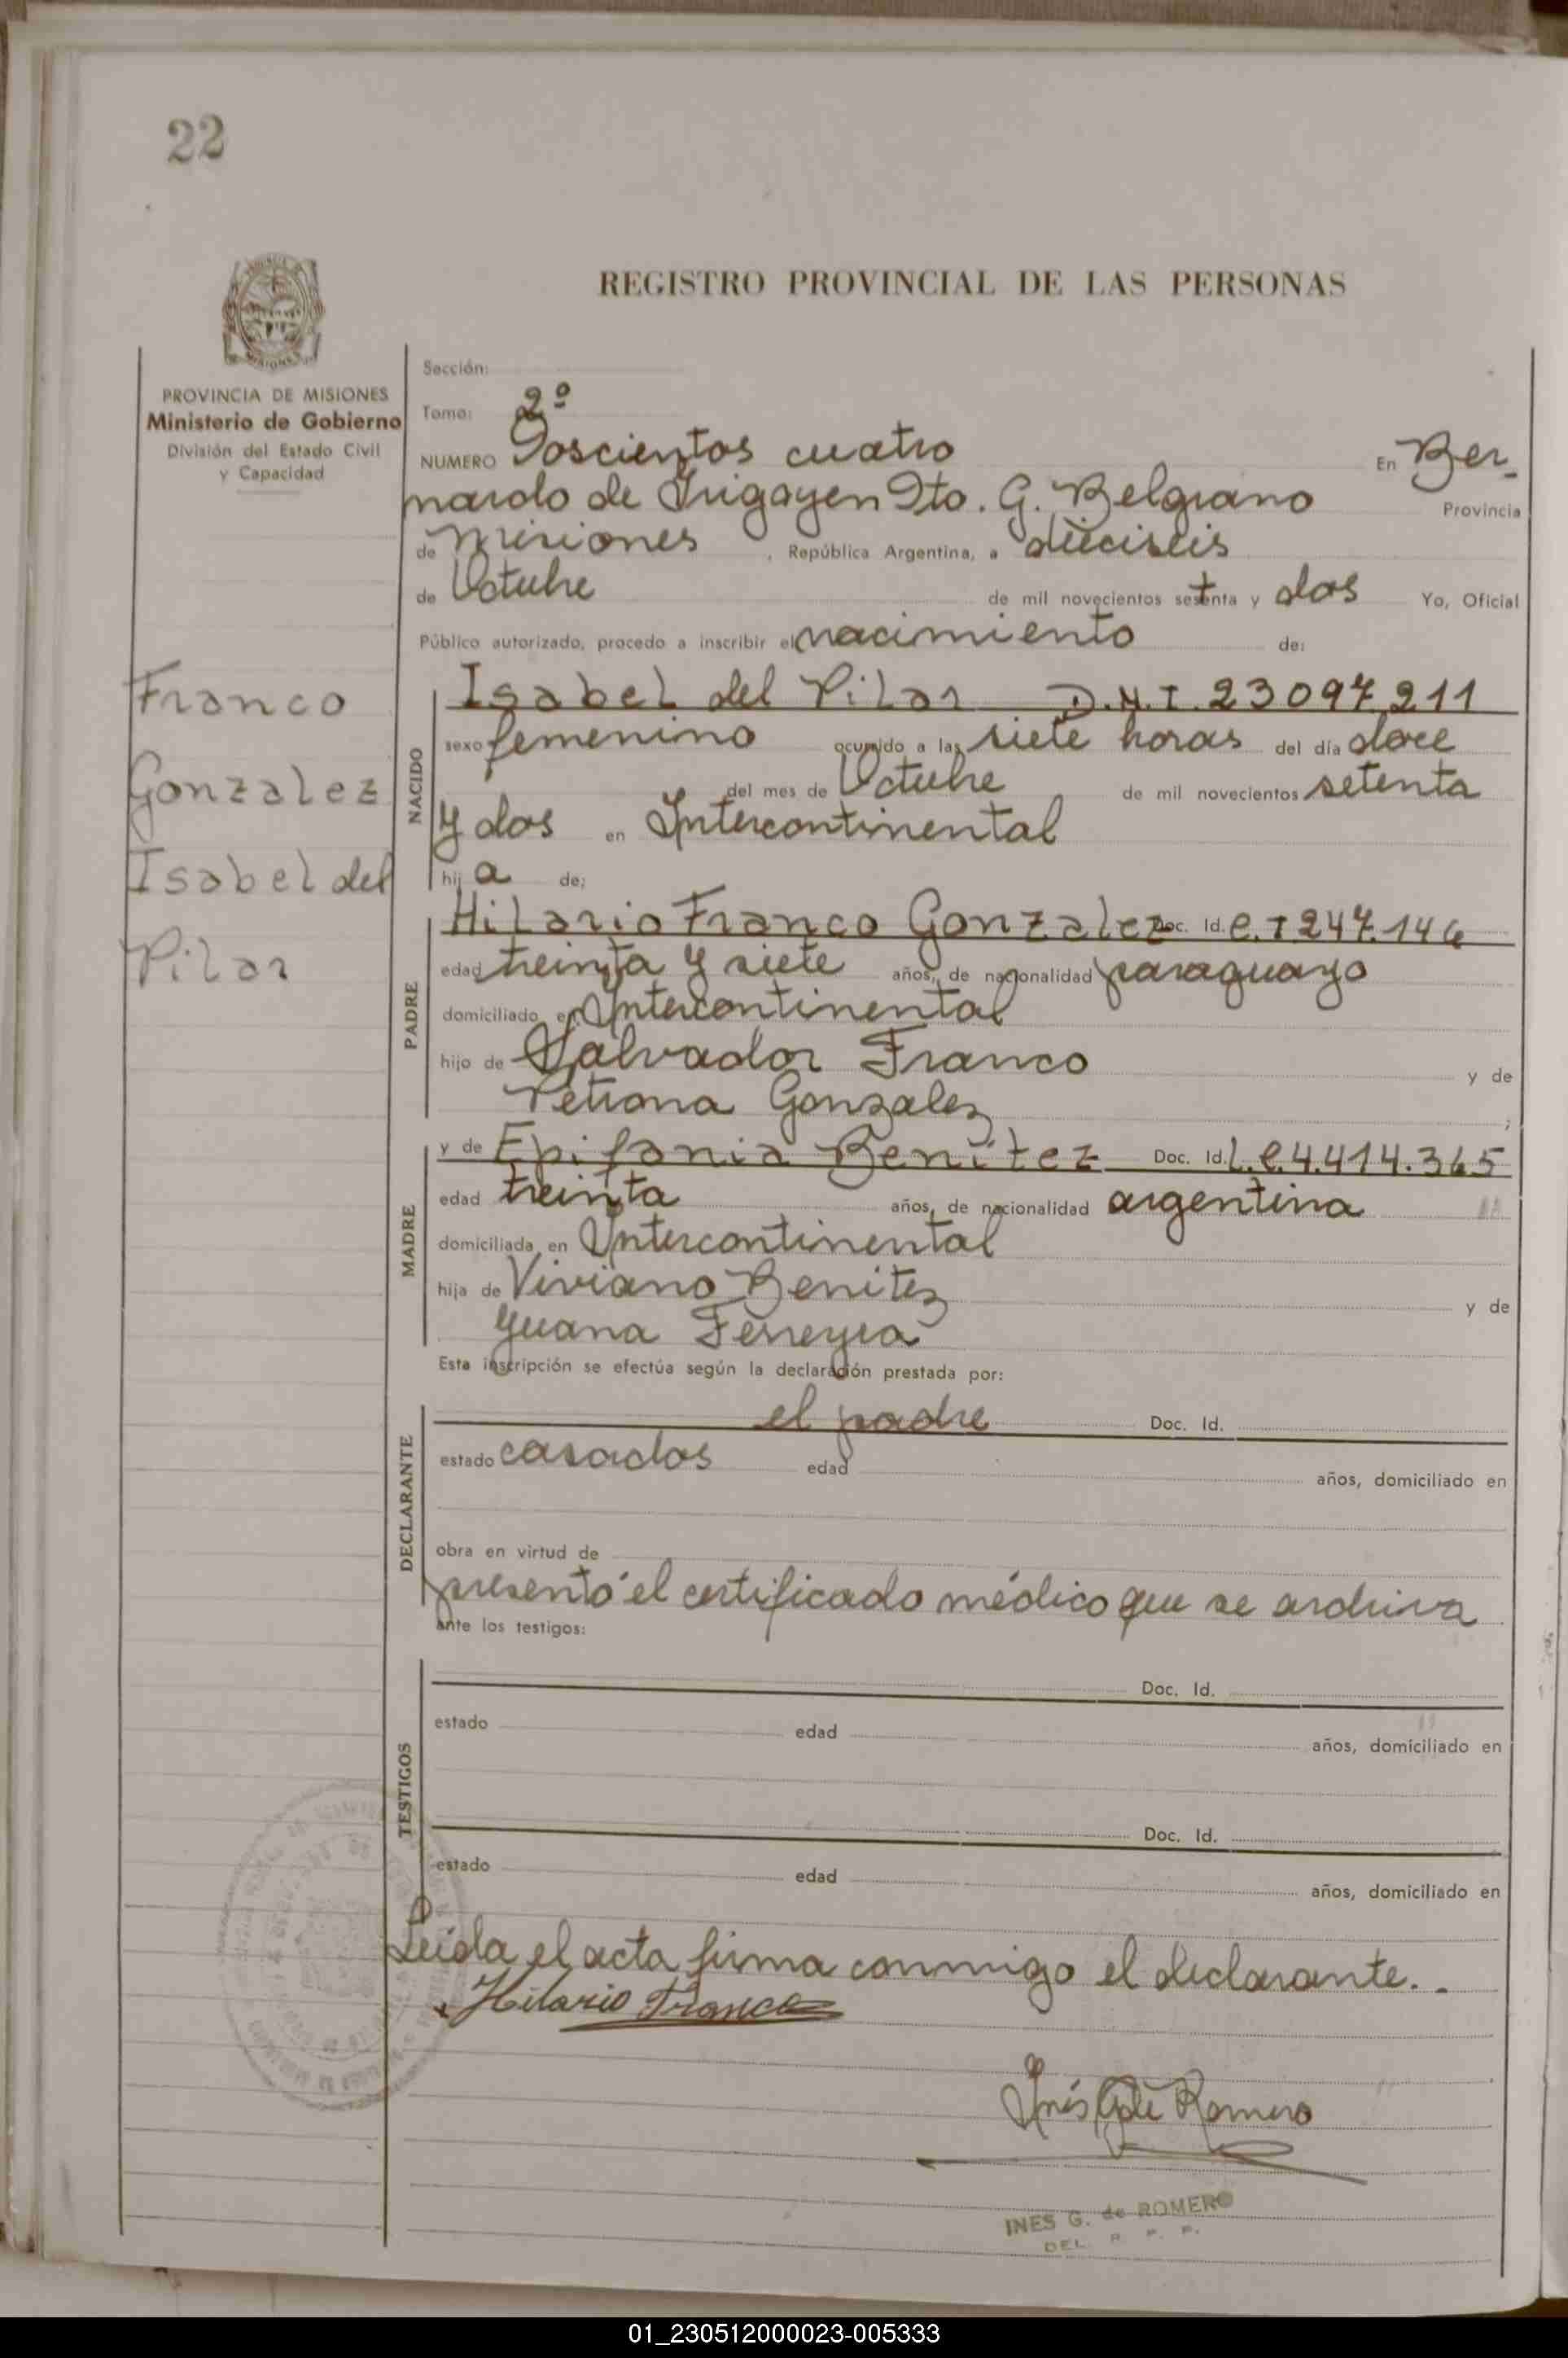 22
REGISTRO PROVINCIAL DE LAS PERSONAS
PROVINCIA DE MISIONES
Ministerio de Gobierno
División del Estado Civil
y Capacidad
Franco
Gonzalez
Isabel del
Pilar
Sección:
Tomo: 2º
NUMERO Doscientos cuatro En Ber-
nardo de Irigoyen Dto. G. Belgrano Provincia
de Misiones, República Argentina, a dieciseis
de Octubre de mil novecientos setenta y dos Yo, Oficial
Público autorizado, procedo a inscribir el nacimiento de:
NACIDO
Isabel del Pilar D.N.I. 23097211
sexo femenino ocurrido a las siete horas del día doce
del mes de Octubre de mil novecientos setenta
y dos en Intercontinental
hij a de:
PADRE
Hilario Franco Gonzalez Doc. Id. C.I 247.146
edad treinta y siete años, de nacionalidad paraguayo
domiciliado en Intercontinental
hijo de Salvador Franco y de
Petrona Gonzalez ;
MADRE
y de Epifania Benítez Doc. Id. L.C.4.414.365
edad treinta años, de nacionalidad argentina
domiciliada en Intercontinental
hija de Viviano Benitez y de
Juana Ferreyra
Esta inscripción se efectúa según la declaración prestada por:
DECLARANTE
el padre Doc. Id.
estado casados edad años, domiciliado en
obra en virtud de
presentó el certificado médico que se archiva
ante los testigos:
TESTIGOS
Doc. Id.
estado edad años, domiciliado en
Doc. Id.
estado edad años, domiciliado en
Leída el acta firma conmigo el declarante.-
Hilario Franco
Inés G de Romero
INES G. de ROMERO
DEL. R. P. P.
01_230512000023-005333